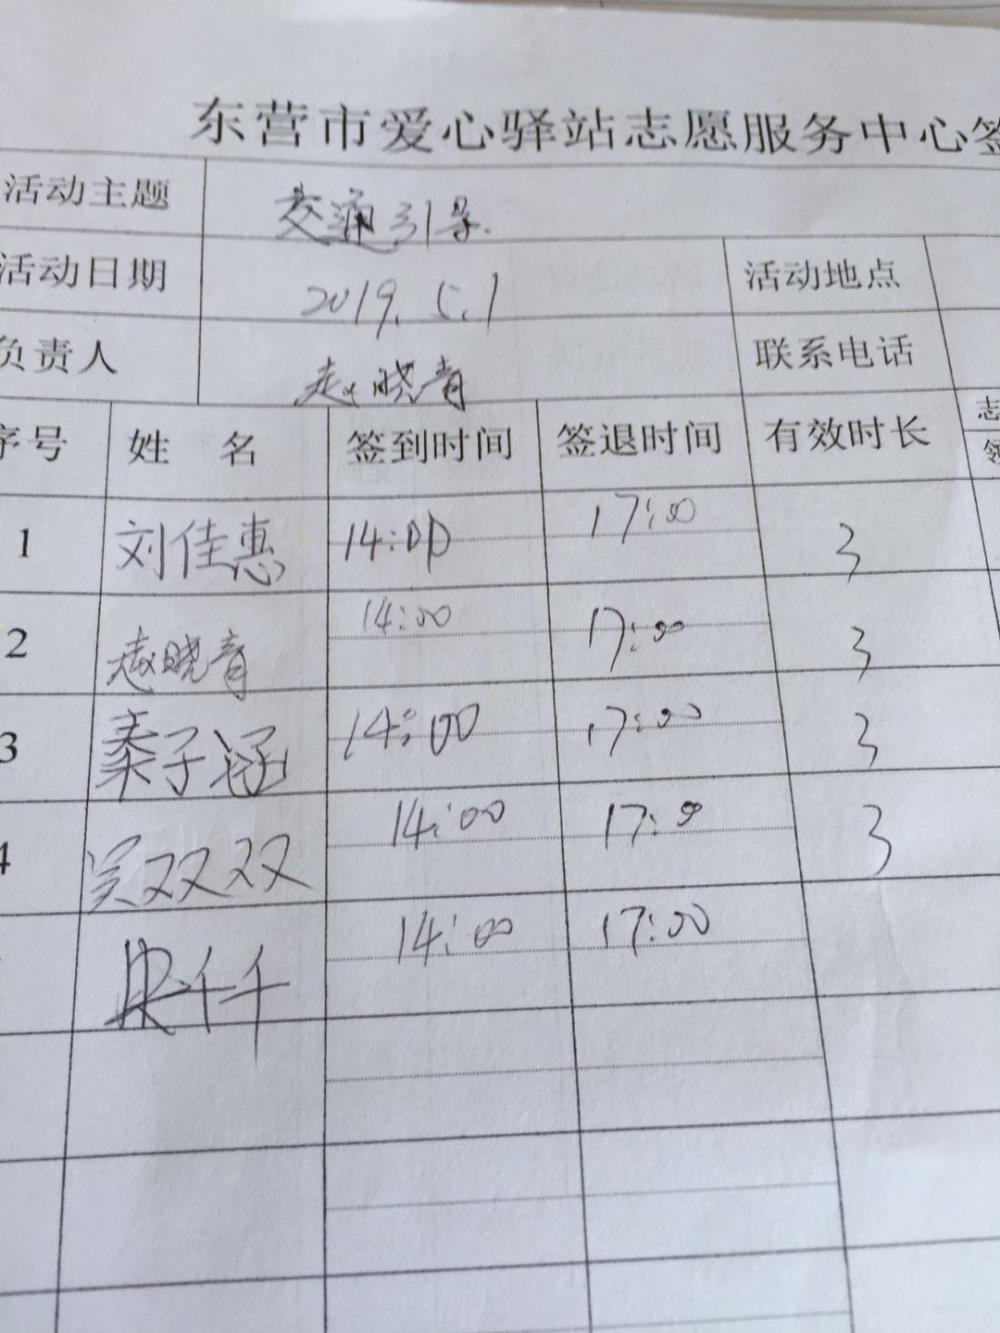 东营市爱心驿站志愿服务中心签
活动主题 交通引导.
活动日期 2019.5.1 活动地点
负责人 赵晓青 联系电话
序号 姓 名 签到时间 签退时间 有效时长 志
领
1 刘佳惠 14:00 17:00 3
2 赵晓青 14:00 17:00 3
3 秦子涵 14:00 17:00 3
4 吴双双 14:00 17:00 3
千千 14:00 17:00